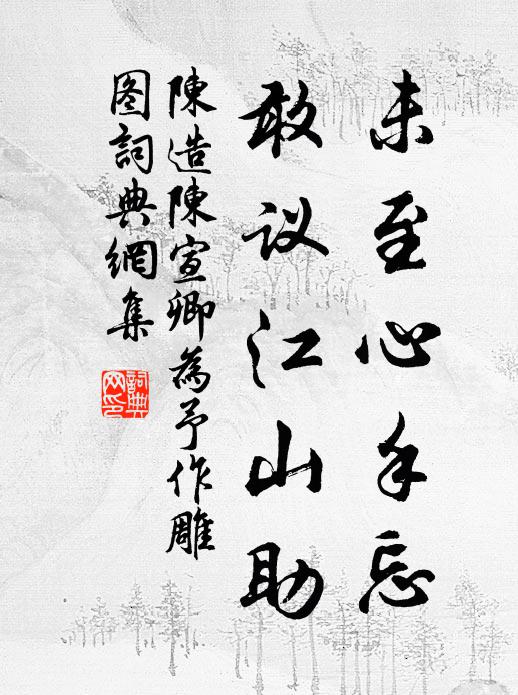 未至心手忘
敢议江山助
陳造陳宣卿為予作雕
图詞典網集
詞典网印